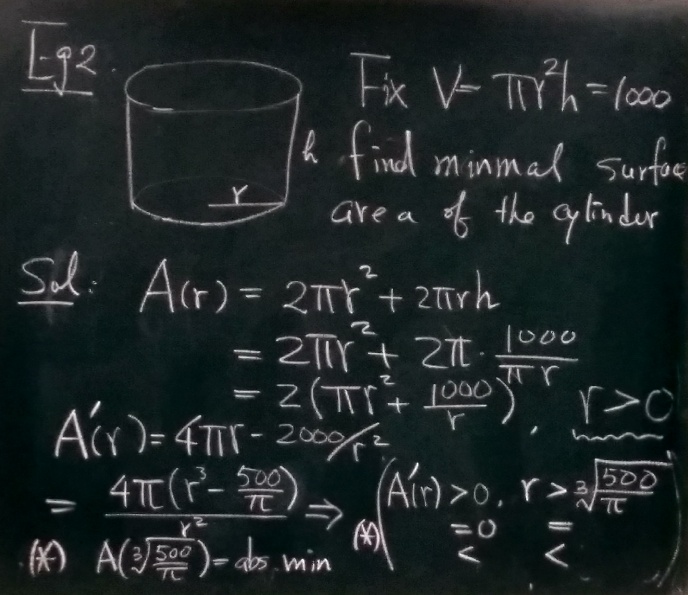 Eg2. Fix V= πr²h = 1000
h find minmal surface
r area of the cylinder
Sol: A(r) = 2πr² + 2πrh
= 2πr² + 2π · 1000/πr
= 2(πr² + 1000/r), r>0
A'(r) = 4πr - 2000/r²
= 4π(r³ - 500/π)/r² ⇒ (*) (A'(r) >0, r > ∛(500/π)
=0 =
< <)
(*) A(∛(500/π)) = abs. min